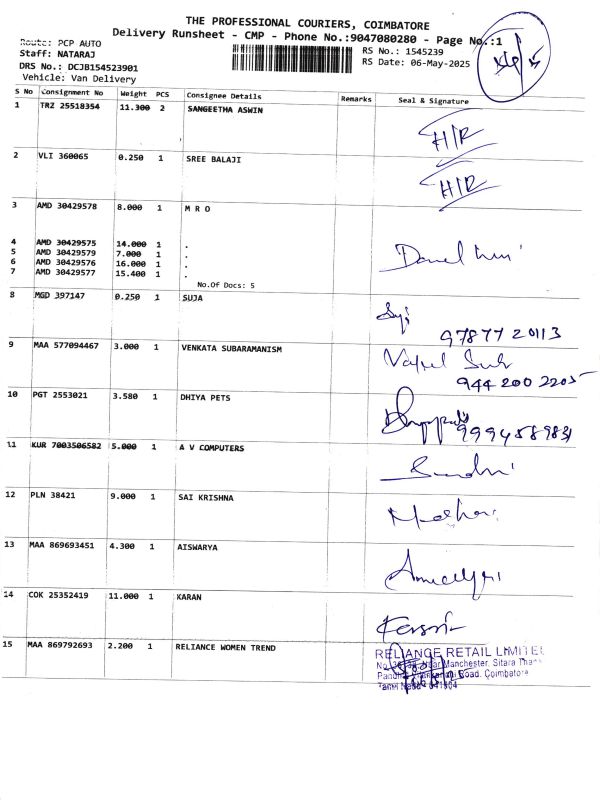 THE PROFESSIONAL COURIERS, COIMBATORE
Delivery Runsheet - CMP - Phone No.:9047080280 - Page No.:1
Route: PCP AUTO
Staff: NATARAJ
RS No.: 1545239
DRS No.: DCJB154523901
RS Date: 06-May-2025
Vehicle: Van Delivery
S No Consignment No Weight PCS Consignee Details Remarks Seal & Signature
1 TRZ 25518354 11.300 2 SANGEETHA ASWIN H/R
2 VLI 360065 0.250 1 SREE BALAJI H/R
3 AMD 30429578 8.000 1 M R O
4 AMD 30429575 14.000 1 .
5 AMD 30429579 7.000 1 .
6 AMD 30429576 16.000 1 .
7 AMD 30429577 15.400 1 .
No.Of Docs: 5
8 MGD 397147 0.250 1 SUJA
9787720113
9 MAA 577094467 3.000 1 VENKATA SUBARAMANISM
944 200 2205
10 PGT 2553021 3.580 1 DHIYA PETS
9994589831
11 KUR 7003506582 5.000 1 A V COMPUTERS
12 PLN 38421 9.000 1 SAI KRISHNA
13 MAA 869693451 4.300 1 AISWARYA
14 COK 25352419 11.000 1 KARAN
15 MAA 869792693 2.200 1 RELIANCE WOMEN TREND
RELIANCE RETAIL LIMITED
Manchester, Sitara
Road, Coimbatore
Tamil Nadu